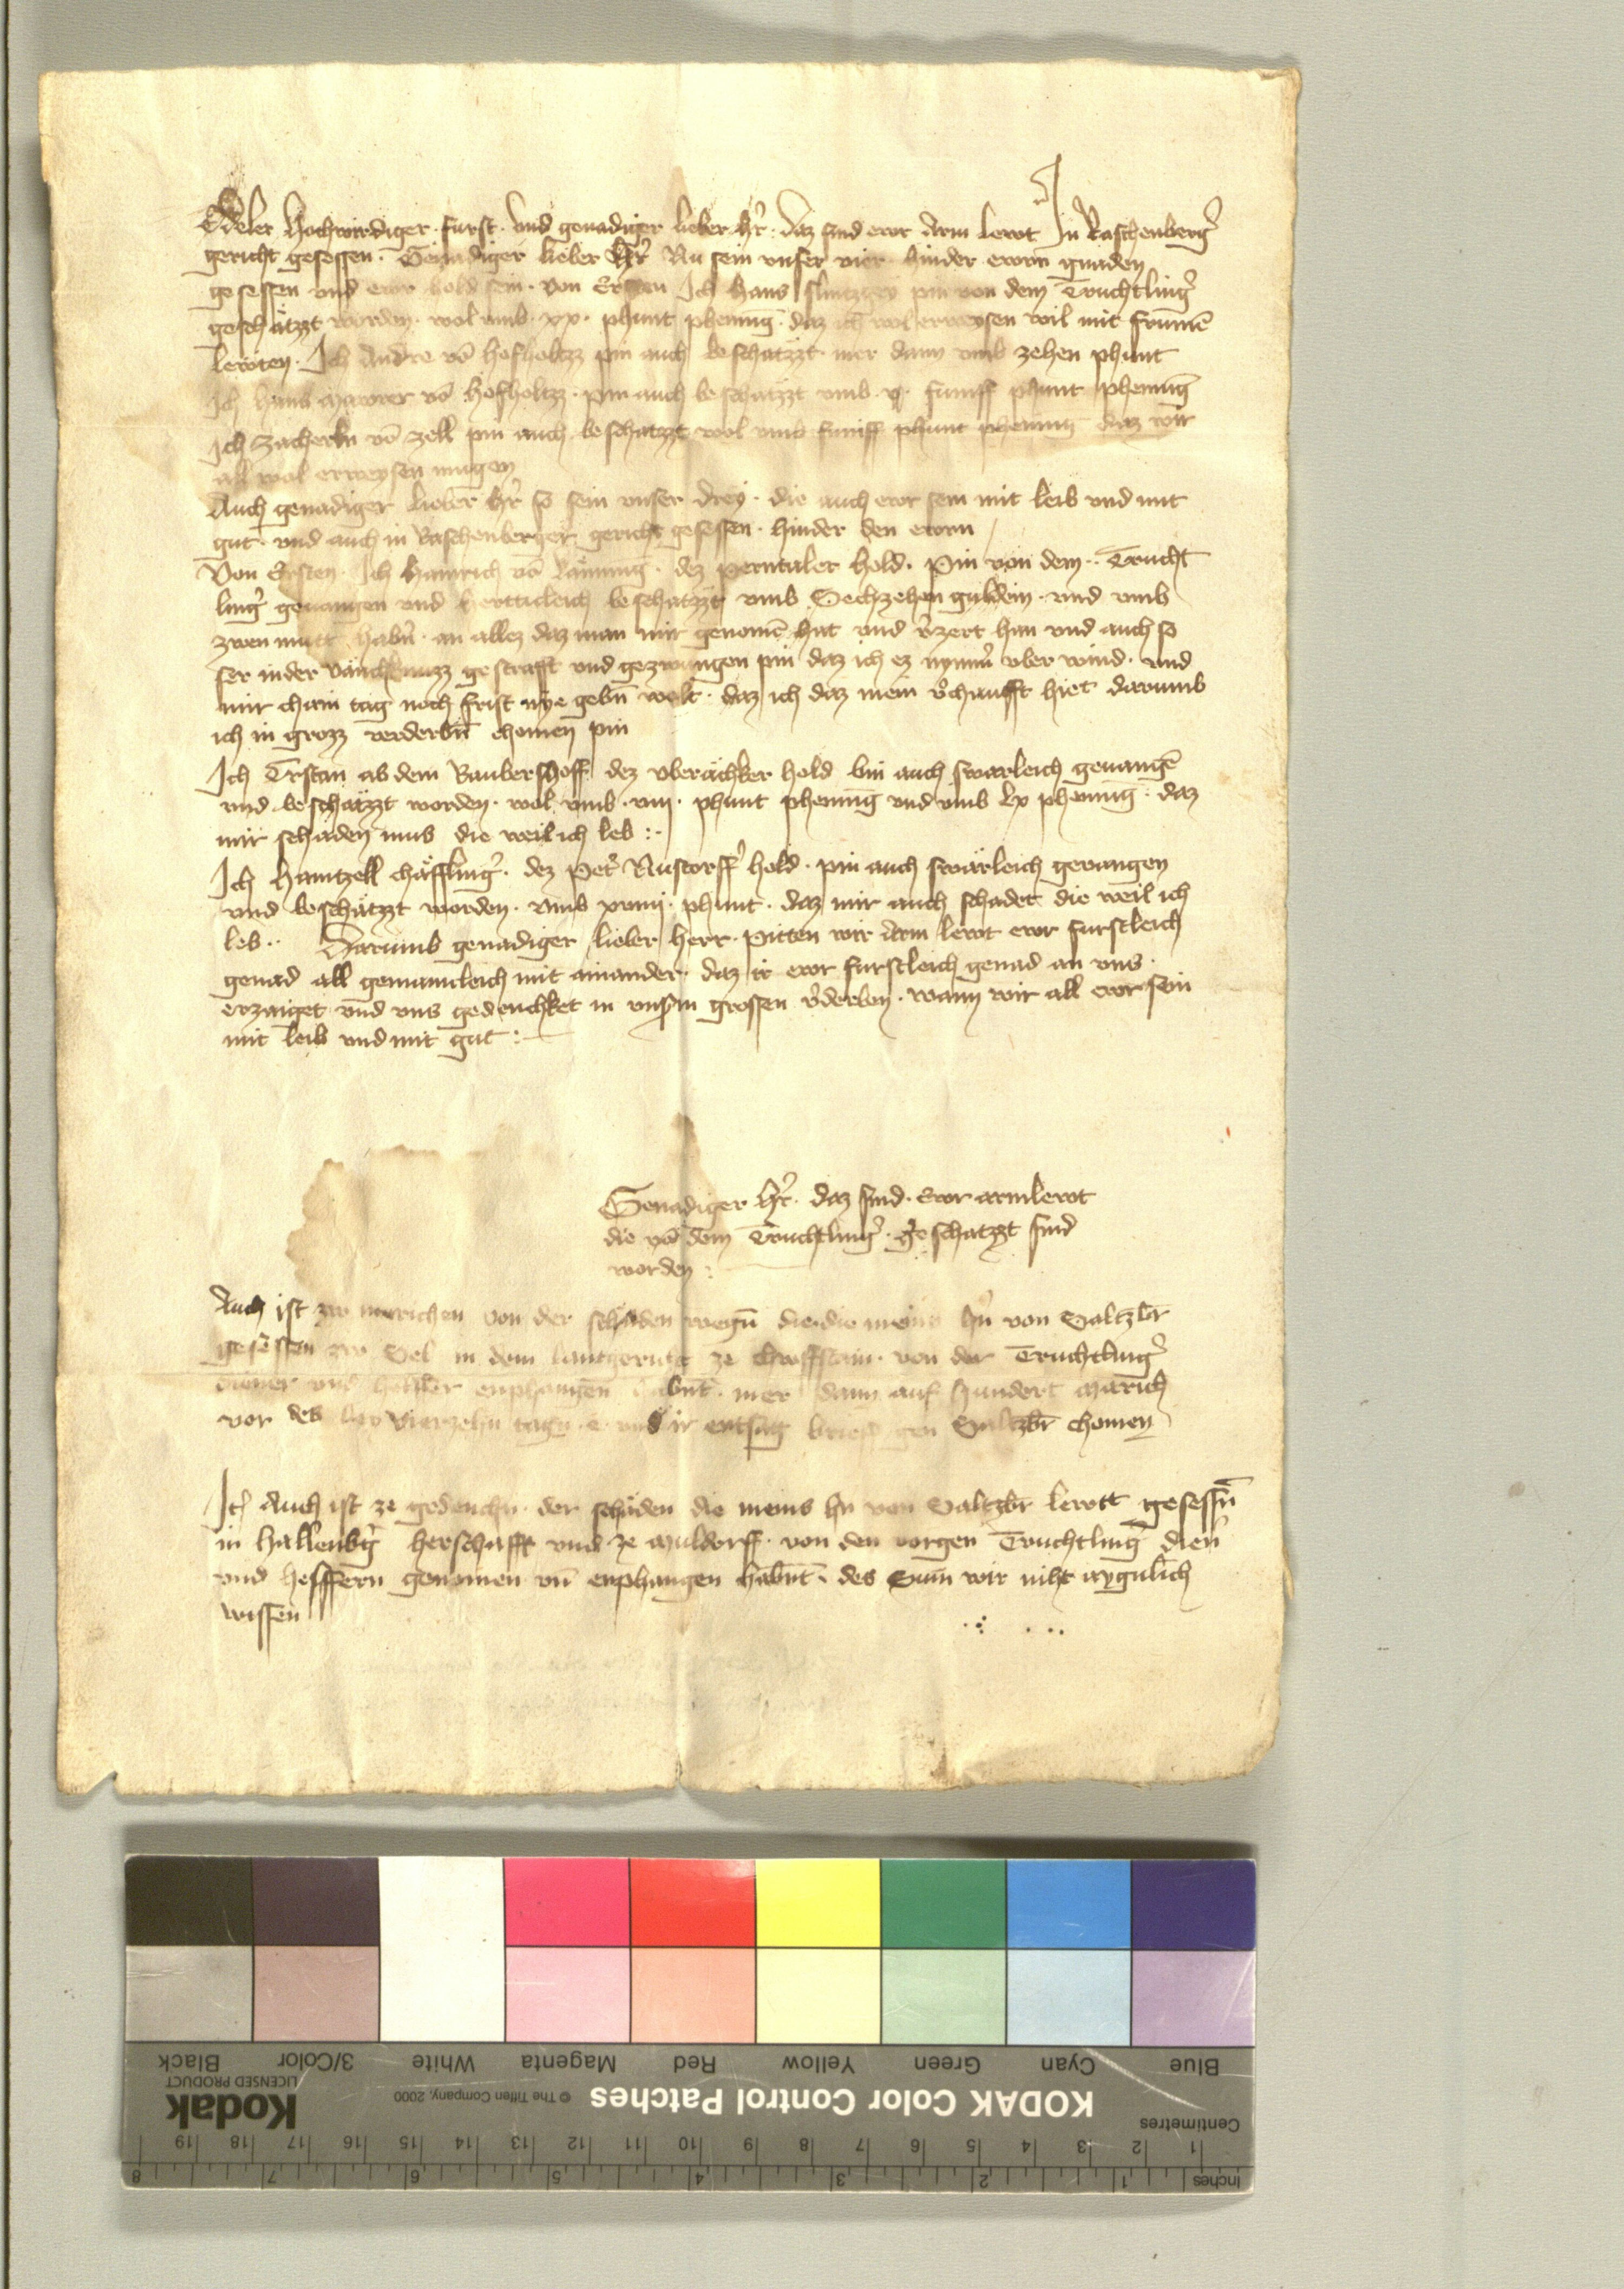 Edeler Hochwirdiger furst und genadiger lieber hr̄ daz sind ewr Arm lewt In Raschenberg̉
gericht gesessen. Genadiger lieber hr̄ Nu sein unser vier hinder ewrn gnaden
gesessen und ewr hold sein. von Ersten Ich Hans pin von dem Truchtling̉
geschätzt worden. wol umb. xx. phunt phening̅. daz ich wol erweysen wil mit frume̅
lewten. Ich Andre vo̅ Hofholtzz pin auch beschatzzt mer dann umb zehen phunt
Ich Hans Mawrer vo̅ Hofholtzz. pin auch beschatzzt umb. v. funff phunt phening̅
Ich Zacherln vo̅ Zell pin auch beschatzzt wol umb funff phunt phening daz wir
all wol erweysen mugen
Auch genadiger lieber hr̄ so sein unser drey. die auch ewr sein mit leib und mit
gut. und auch in Raschenberger gericht gesessen. hinder den ewrn
Von Ersten. Ich Hainrich vo̅ Läming. dez perntaler hold. Pin von dem. Trucht
ling̉ gevangen und beschatzzt umb Sechzehen guldein. und umb
zwen mutt habn̅. an allez daz man mir genome̅ hat und v̉zert han und auch so
ser in der vänchknuzz gestrafft und gezwungen pin daz ich ez nymm̉ uber wind. und
mir chain tag noch frist nye gebn̅ wolt. daz ich daz mein v̉chaufft hiet darumb
ich in grozz verderbn̅ chomen pin
Ich Trstan ab dem Raubershoff dez uberächker hold bin auch swarleich gevange̅
und beschatzzt worden. wol umb. viii. phunt phening̅ und umb lx phening̅. daz
mir schaden mus die weil ich leb :.
Ich Haintzell chäffling̉. dez Pet̉ Nustorff̉ hold. pin auch swärleich gevangen
und beschätzzt worden. umb xviiii. phunt. daz mir auch schadet die weil ich
leb.. Darumb genadiger lieber herr. Pitten wir Arm lewt ewr furstleich
genad all gemainicleich mit ainander. daz ir ewr furstleich genad an uns.
erzaiget und uns gedenchket in unsn̉ grossen v̉derben. wann wir all ewr sein
mit leib und mit gut :
Genadiger hr̄. daz sind. Ewr armlewt
die vo̅ dem Truchtling̉. geschatzzt sind
worden :
Auch ist zw merichen von der schäden wegn̅ die die meins hn̄ von Saltzbr̄
gesessen zw Sel in dem lantgericht ze. von der Truchtling̉
diener und helffer enphangen habnt. mer dann auf hundert Marich
vor des vierzehn tagn. e. uns ir entsag brief gen Saltzbr̄ chomen
It̉ Auch ist ze gedenchn. der schäden die meins hn̄ von Saltzbr̄ lewtt gesessn̅
in Hallenb̉g herschafft und ze Muldorff. von den vorgen Truchtling̉ dien̉
und helffern genomen un̅ enphangen habnt. des Sum̅ wir niht aygnlich
wissen